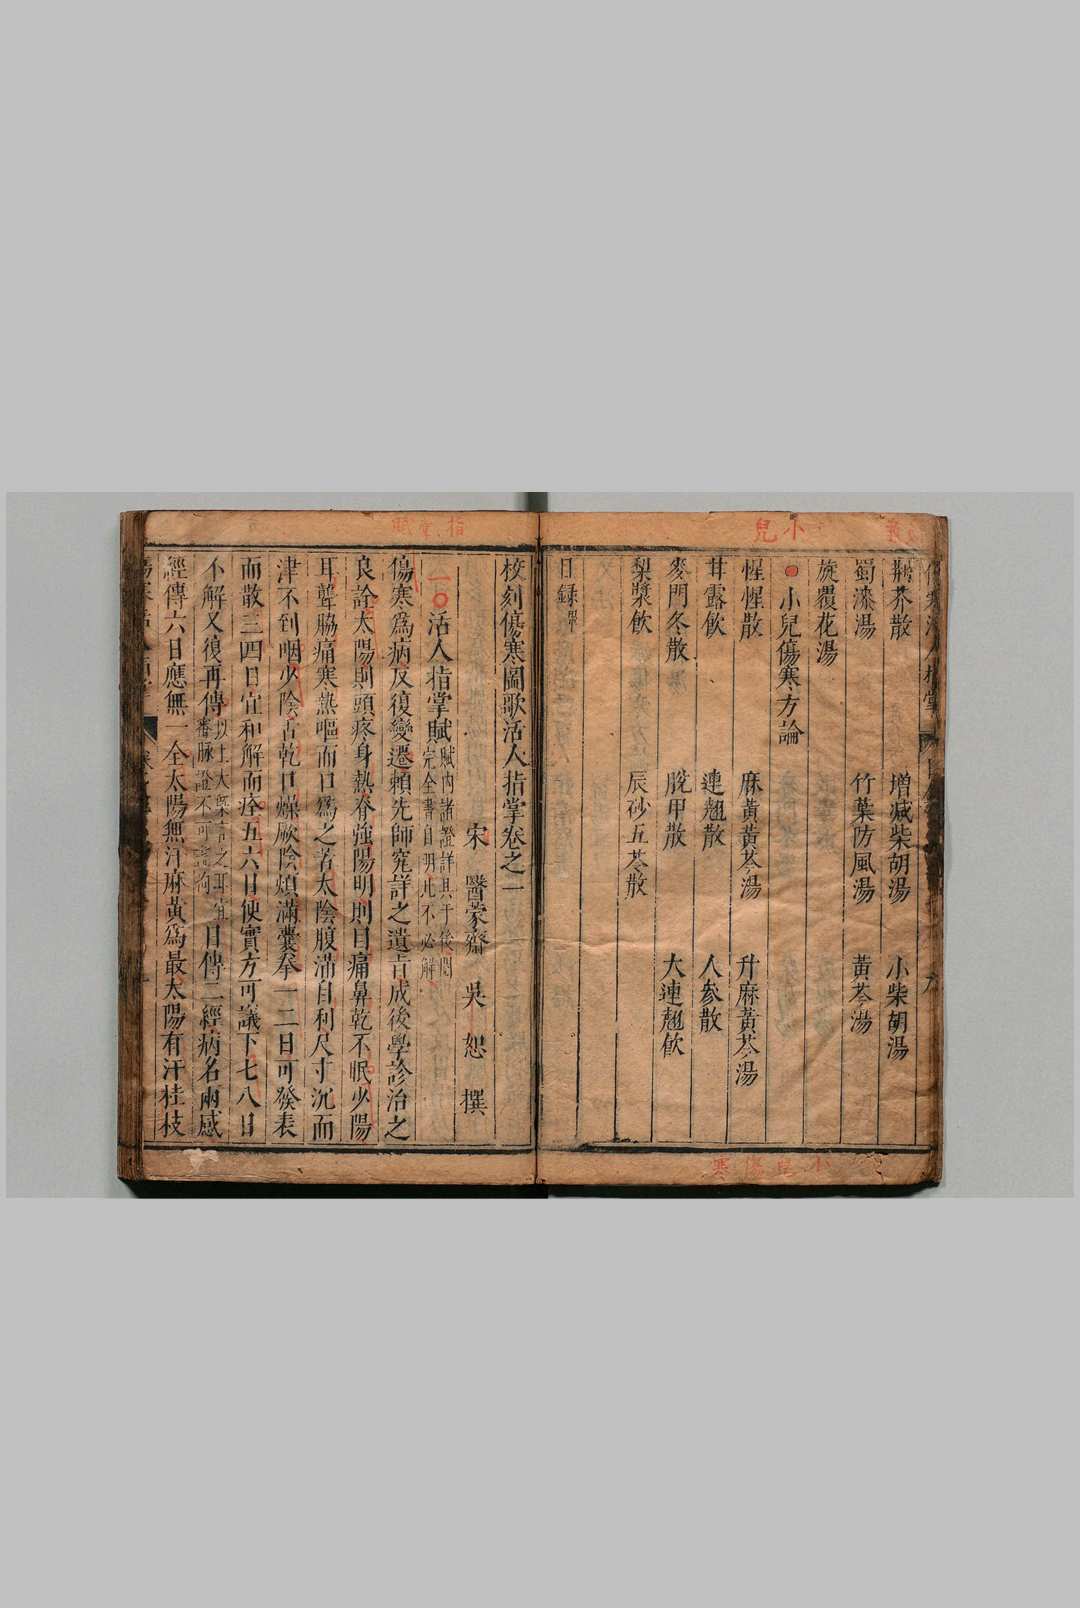 小兒
荆芥散　增減柴胡湯　小柴胡湯
蜀漆湯　竹葉防風湯　黃芩湯
旋覆花湯
小兒傷寒方論
惺惺散　麻黃黃芩湯　升麻黃芩湯
甘露飲　連翹散　人參散
麥門冬散　脫甲散　大連翹飲
梨漿飲　辰砂五苓散
目錄畢
小兒傷寒
指掌賦
校刻傷寒圖歌活人指掌卷之一
宋　醫蒙齋　吳　恕　撰
一〇活人指掌賦
賦內諸證詳具于後問
完全書自明此不必解
傷寒爲病反復變遷賴先師究詳之遺旨成後學診治之
良詮太陽則頭疼身熱脊強陽明則目痛鼻乾不眠少陽
耳聾脇痛寒熱嘔而口爲之苦太陰腹滿自利尺寸沉而
津不到咽少陰舌乾口燥厥陰煩滿囊拳一二日可發表
而散三四日宜和解而痊五六日便實方可議下七八日
不解又復再傳
以上大槩言之耳宜
審脉證不可
日傳二經病名兩感
經傳六日應無一全太陽無汗麻黃爲最太陽有汗桂枝